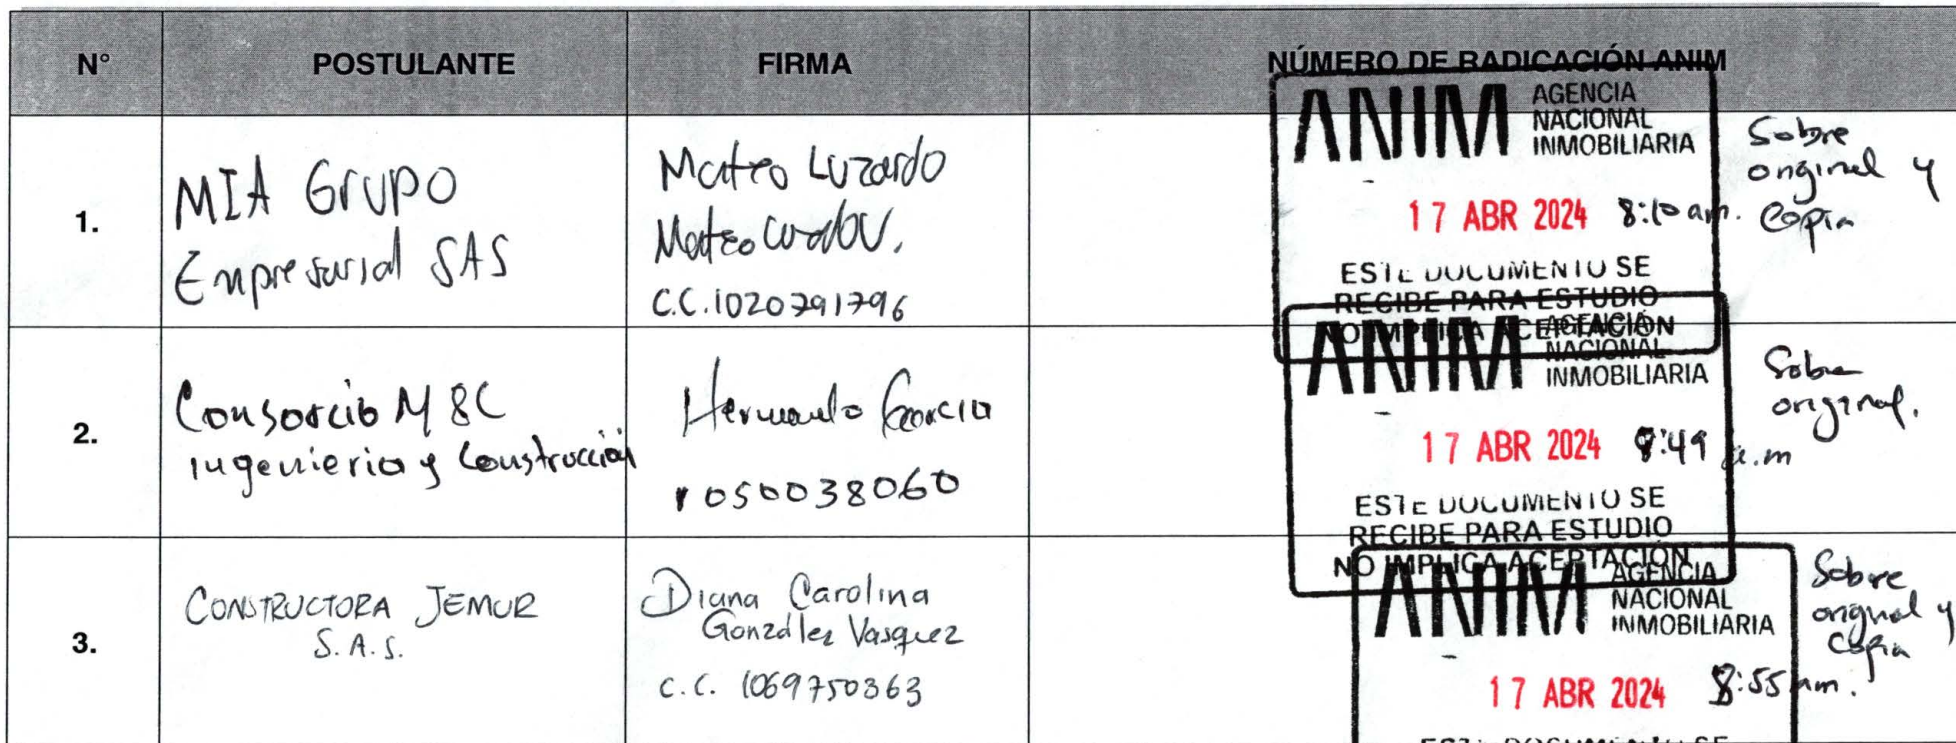 N° POSTULANTE FIRMA NÚMERO DE RADICACIÓN ANIM
1.
MIA Grupo
Empresarial SAS
Mateo Luzardo
Mateo
C.C. 1020791796
ANIM AGENCIA
NACIONAL
INMOBILIARIA
17 ABR 2024 8:10 am.
ESTE DOCUMENTO SE
RECIBE PARA ESTUDIO
NO IMPLICA ACEPTACIÓN
Sobre
original y
Copia
2.
Consorcio M&C
Ingenieria y Construcción
Hernando Garcia
1050038060
ANIM AGENCIA
NACIONAL
INMOBILIARIA
17 ABR 2024 8:49 a.m
ESTE DOCUMENTO SE
RECIBE PARA ESTUDIO
NO IMPLICA ACEPTACIÓN
Sobre
original.
3.
CONSTRUCTORA JEMUR
S.A.S.
Diana Carolina
González Vasquez
C.C. 1069750363
ANIM AGENCIA
NACIONAL
INMOBILIARIA
17 ABR 2024 8:55 am.
ESTE DOCUMENTO SE
Sobre
original y
Copia